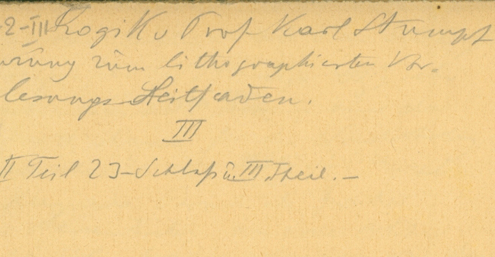 2-III Logik v Prof Karl Stumpf
zum lithographierten Vor-
lesungs-Leitfaden.
III
II Teil 23-Schluß u. III Theil. —